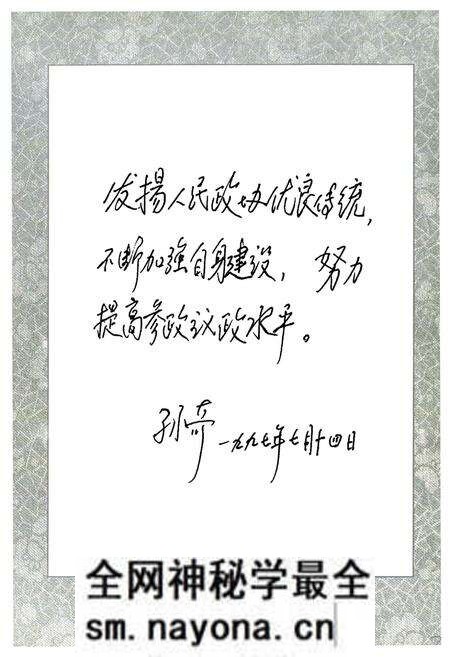 发揚人民政协优良传统，
不断加强自身建设，努力
提高参政议政水平。
孙奇 一九九七年七月十四日
全网神秘学最全
sm.nayona.cn